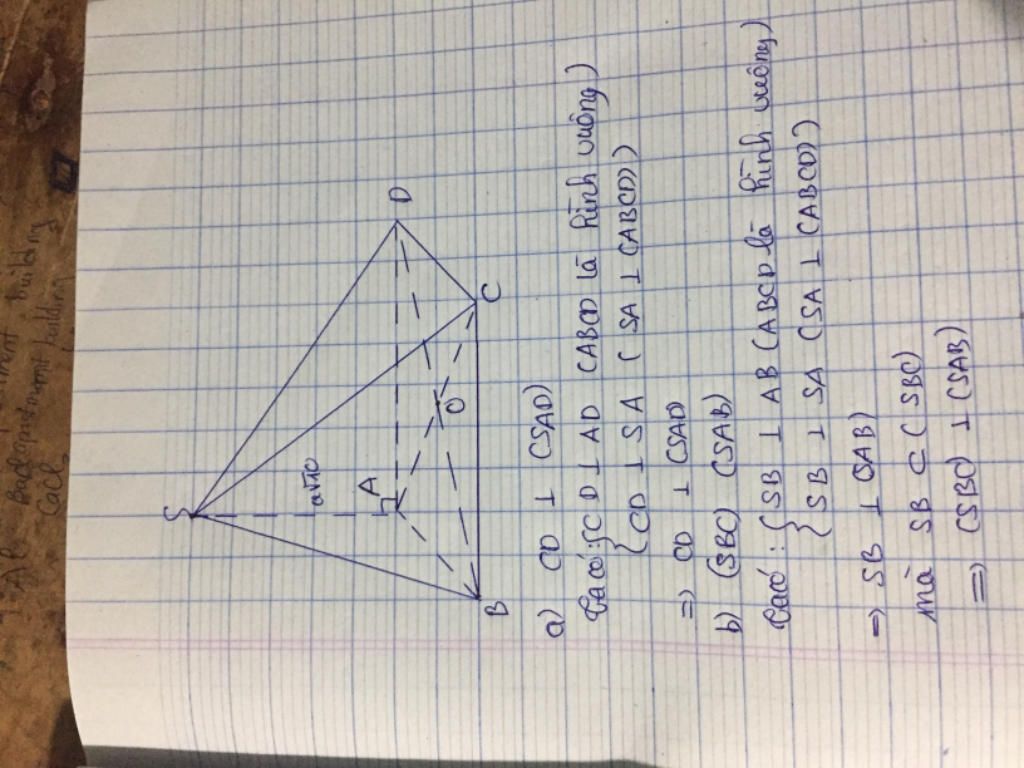 S
a√10
A
D
O
B
C
a) CD ⊥ (SAD)
Ta có: { CD ⊥ AD (ABCD là hình vuông)
{ CD ⊥ SA ( SA ⊥ (ABCD))
=> CD ⊥ (SAD)
b) (SBC) (SAB)
Ta có: { SB ⊥ AB (ABCD là hình vuông)
{ SB ⊥ SA (SA ⊥ (ABCD))
=> SB ⊥ (SAB)
mà SB ⊂ (SBC)
=> (SBC) ⊥ (SAB)
building
building
CaCl₂